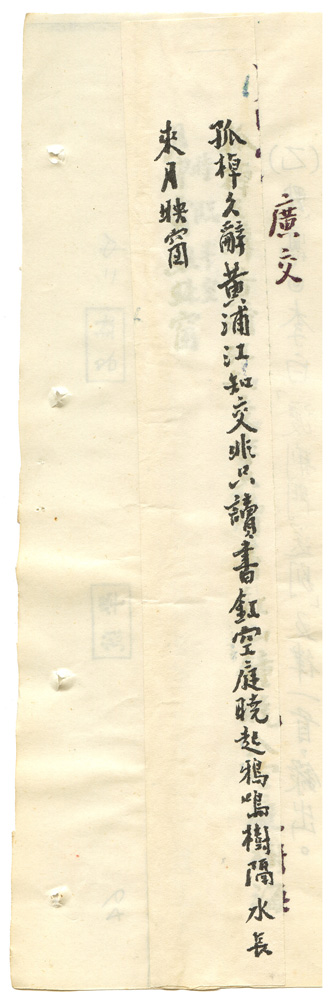 廣交
孤棹久辭黃浦江知交非只讀書釭空庭曉起鴉鳴樹隔水長
來月映窗